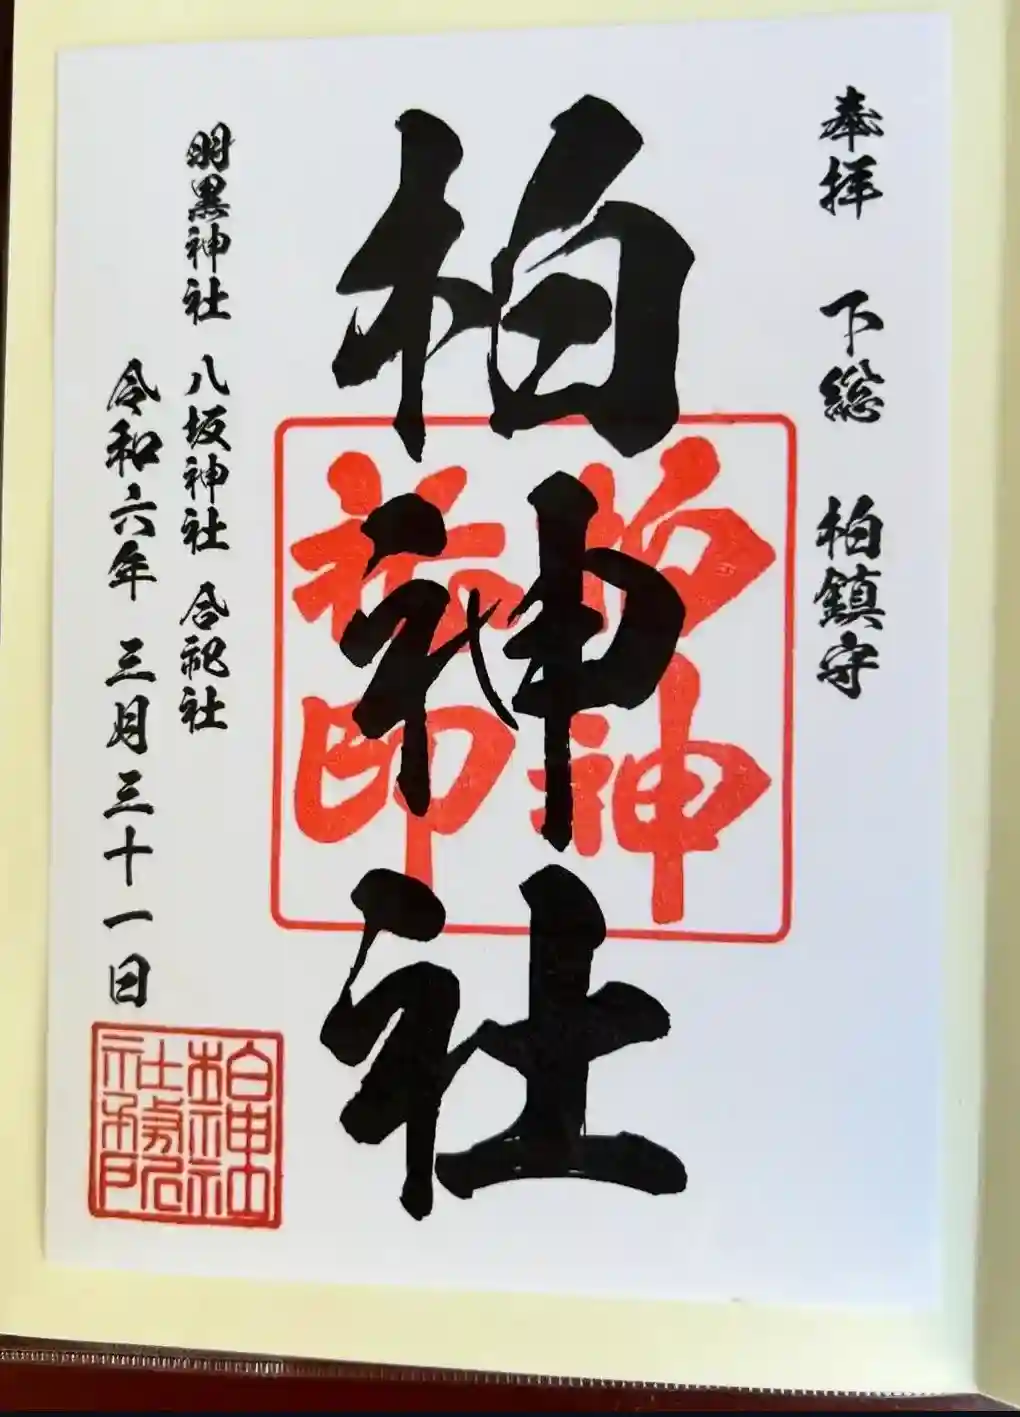 奉拝 下総 柏鎮守
柏神社
羽黒神社 八坂神社 合祀社
令和六年 三月三十一日
柏神
社印
柏神社
社務所